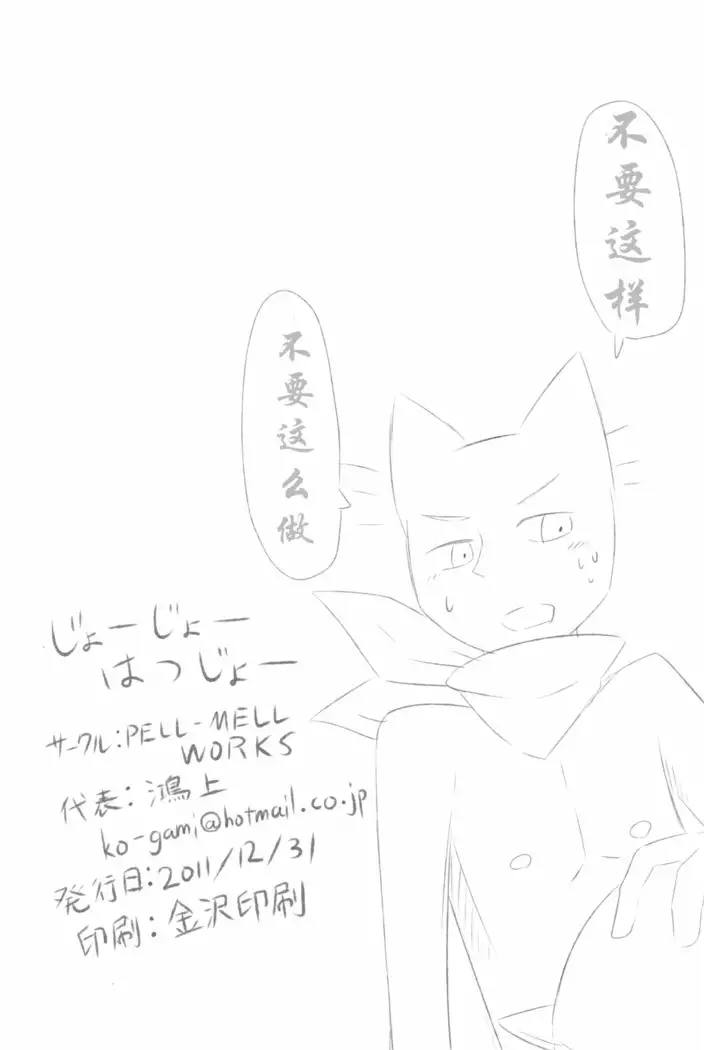 不要这样
不要这么做
じょーじょー
はつじょー
サークル:PELL-MELL
WORKS
代表:鴻上
ko-gami@hotmail.co.jp
発行日:2011/12/31
印刷:金沢印刷